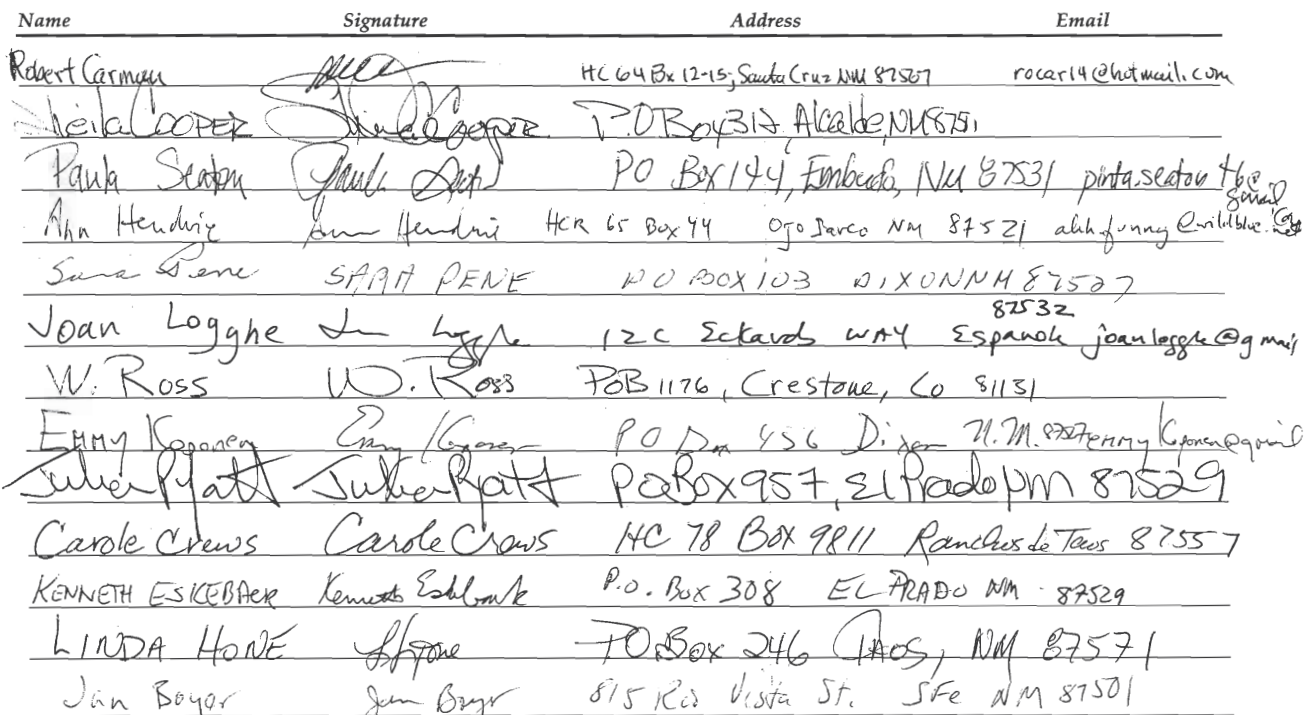 Name Signature Address Email
Robert Carman HC 64 Bx 12-15, Santa Cruz NM 87567 rocar14@hotmail.com
Sheila COOPER Sheila Cooper P.O Box 317 Alcalde, NM 8751
Paula Seaton Paula Seaton PO Box 144, Embudo, NM 87531 pinta.seaton46@
gmail
Ann Hendrie Ann Hendrie HCR 65 Box 44 Ojo Sarco NM 87521 ahhfunny@wildblue.net
Sara Pene SARA PENE PO BOX 103 DIXON NM 87527
87532
Joan Logghe 12C Eckards WAY Espanola joanlogghe@gmail
W. Ross W. Ross POB 1176, Crestone, Co 81131
Emmy Koponen Emmy Koponen P O Box 456 Dixon N.M. 87527 emmykoponen@gmail
Julia Pyatt Julia Pyatt PO Box 957, El Prado NM 87529
Carole Crews Carole Crews HC 78 Box 9811 Ranchos de Taos 87557
KENNETH ESKEBAEK P.O. Box 308 EL PRADO NM 87529
LINDA HONE L Hone P.O. Box 246 TAOS, NM 87571
Jan Boyer Jan Boyer 815 Rio Vista St. SFe NM 87501